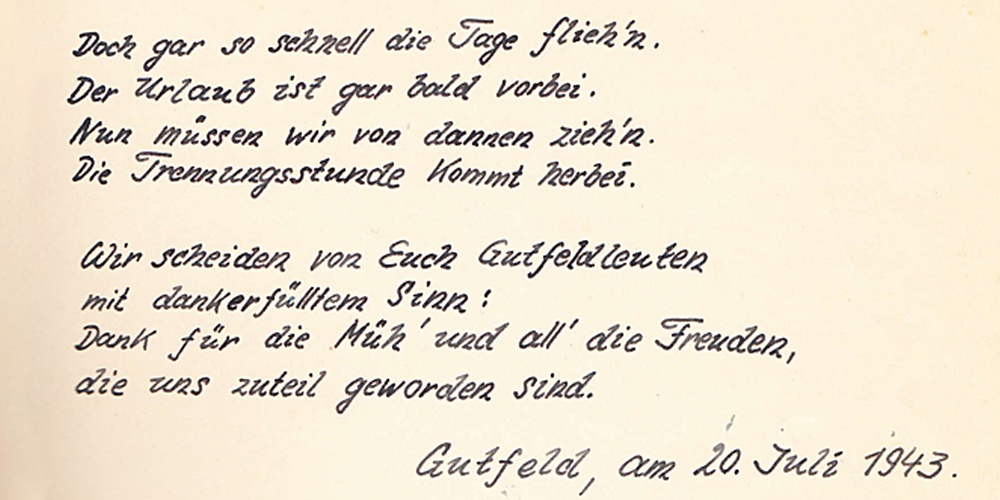 Doch gar so schnell die Tage flieh'n.
Der Urlaub ist gar bald vorbei.
Nun müssen wir von dannen zieh'n.
Die Trennungsstunde kommt herbei.
Wir scheiden von Euch Gutfeldleuten
mit dankerfülltem Sinn:
Dank für die Müh' und all' die Freuden,
die uns zuteil geworden sind.
Gutfeld, am 20. Juli 1943.